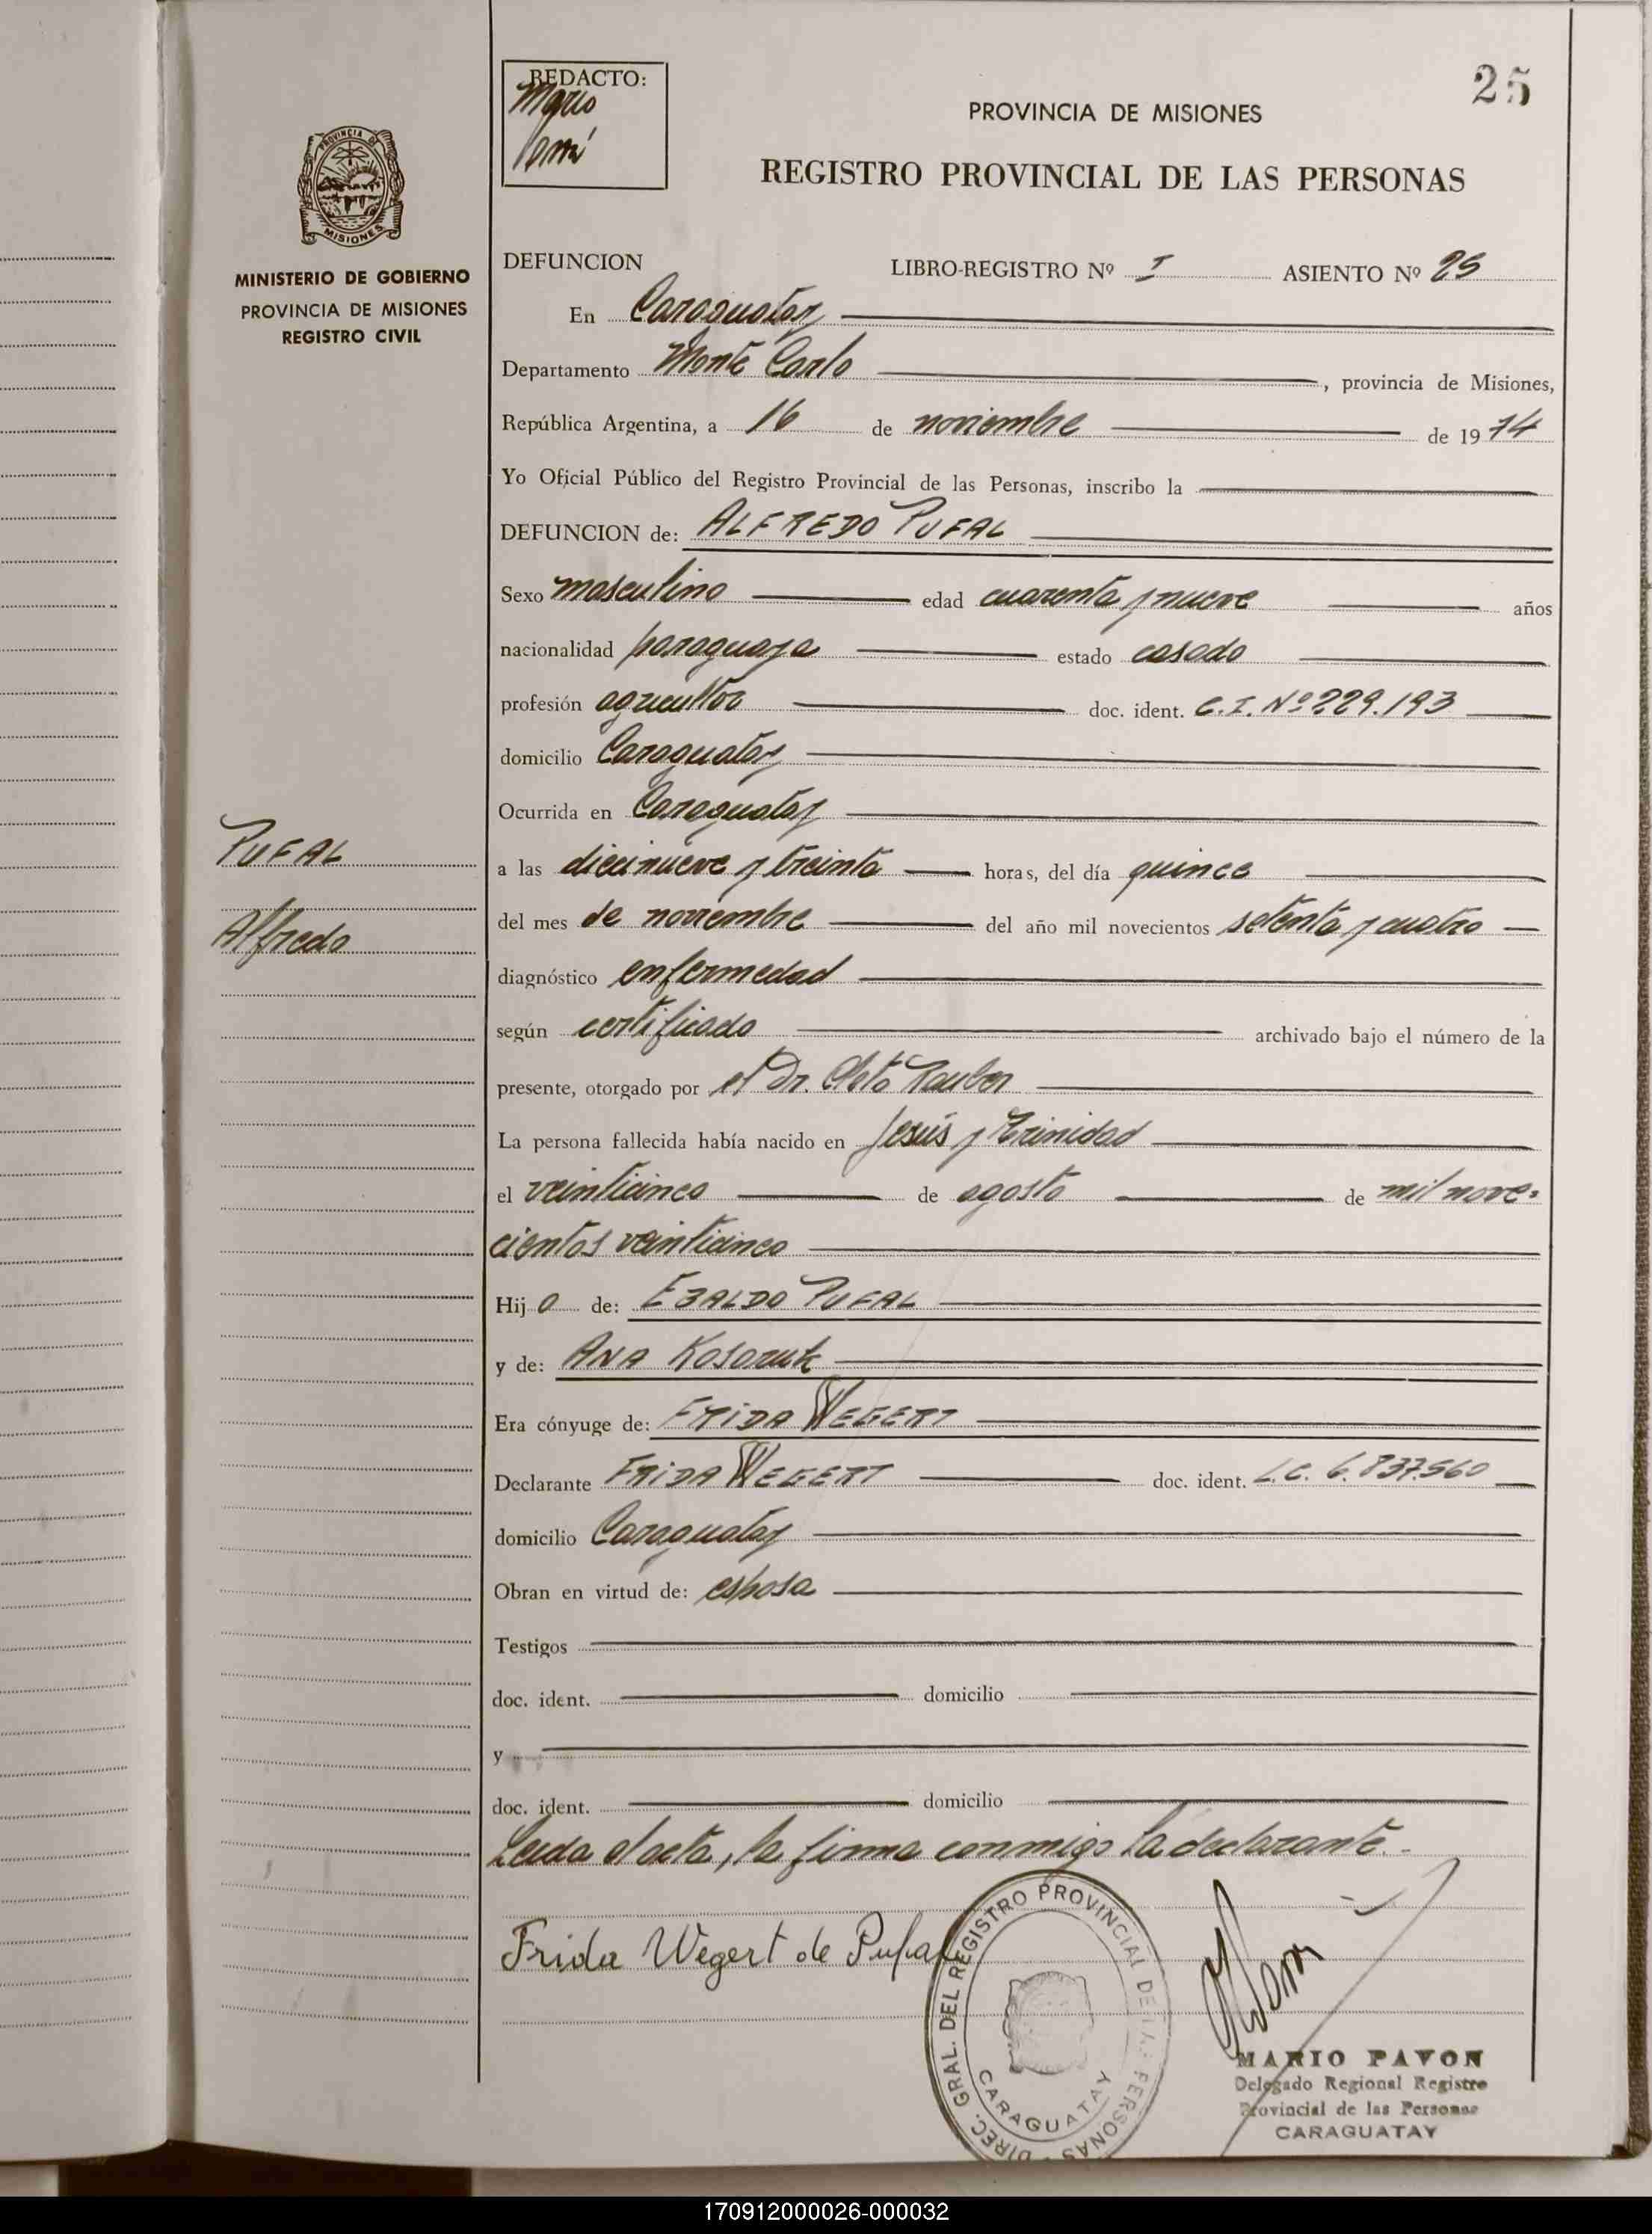 25
REDACTO:
Mario
PROVINCIA DE MISIONES
REGISTRO PROVINCIAL DE LAS PERSONAS
PROVINCIA DE
MISIONES
MINISTERIO DE GOBIERNO
PROVINCIA DE MISIONES
REGISTRO CIVIL
DEFUNCION LIBRO-REGISTRO Nº I ASIENTO Nº 25
En Caraguatay
Departamento Monte Carlo, provincia de Misiones,
República Argentina, a 16 de noviembre de 1974
Yo Oficial Público del Registro Provincial de las Personas, inscribo la
DEFUNCION de: ALFREDO PUFAL
Sexo masculino edad cuarenta y nueve años
nacionalidad paraguaya estado casado
profesión agricultor doc. ident. C.I. Nº 229.193
domicilio Caraguatay
Ocurrida en Caraguatay
PUFAL
Alfredo
a las diecinueve y treinta horas, del día quince
del mes de noviembre del año mil novecientos setenta y cuatro
diagnóstico enfermedad
según certificado archivado bajo el número de la
presente, otorgado por el Dr. Rauber
La persona fallecida había nacido en Jesús y Trinidad
el veinticinco de agosto de mil nove-
cientos veinticinco
Hijo de: EBALDO PUFAL
y de: ANA
Era cónyuge de: FRIDA WEGERT
Declarante FRIDA WEGERT doc. ident. L.C. 6.837.560
domicilio Caraguatay
Obran en virtud de: esposa
Testigos
doc. ident. domicilio
y
doc. ident. domicilio
Leida el acta, la firma conmigo la declarante.-
Frida Wegert de Pufal
DIREC. GRAL. DEL REGISTRO PROVINCIAL DE LAS PERSONAS
CARAGUATAY
MARIO PAVON
Delegado Regional Registro
Provincial de las Personas
CARAGUATAY
170912000026-000032